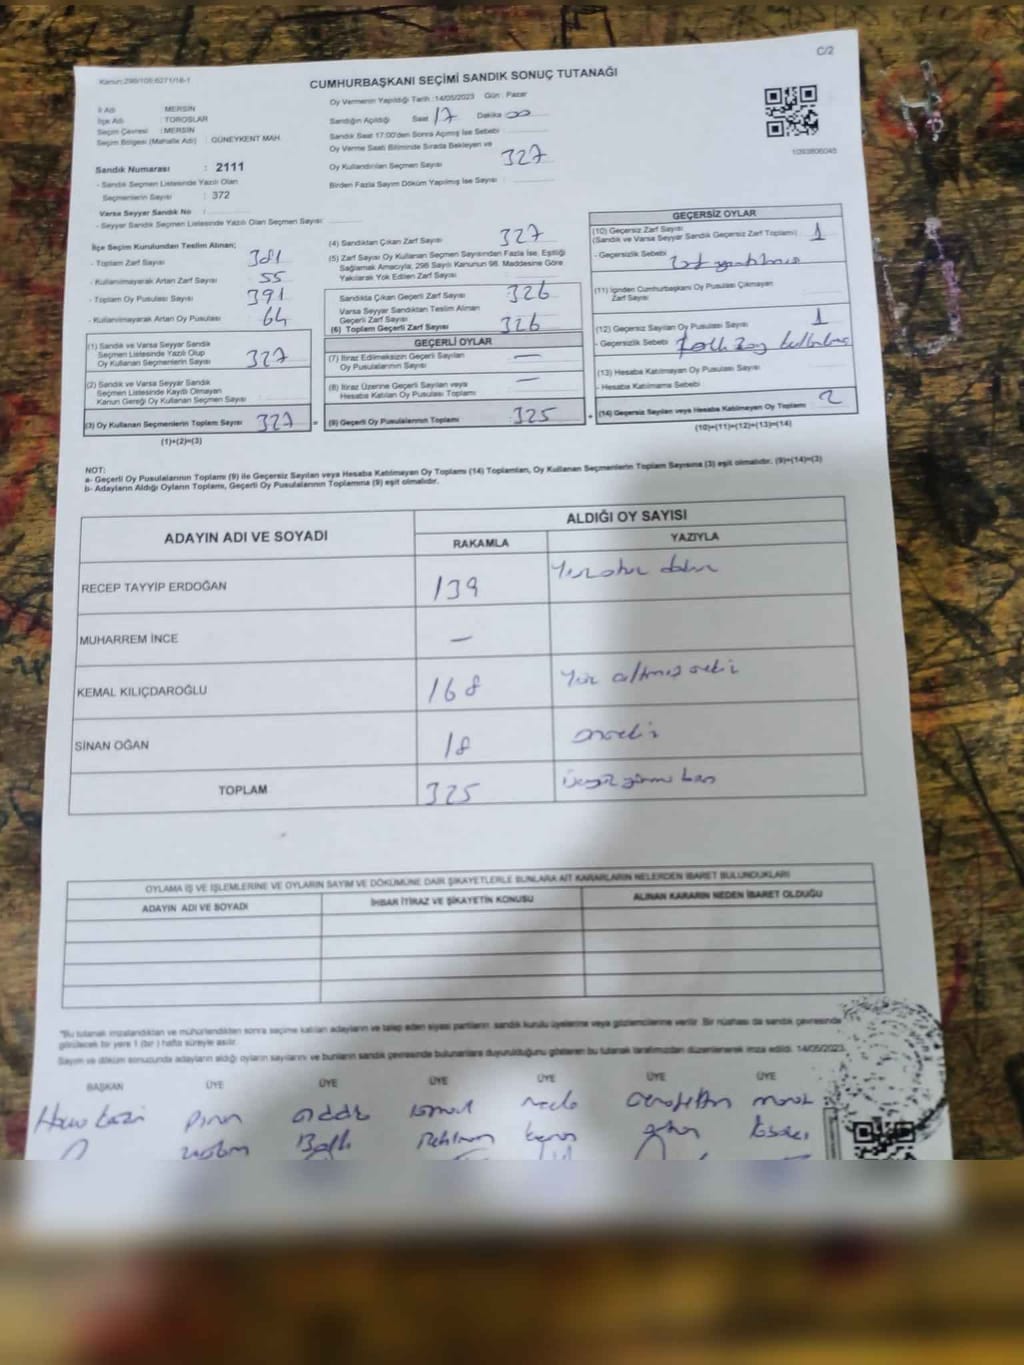 C/2
Kanun:298/105:6271/18-1
CUMHURBAŞKANI SEÇİMİ SANDIK SONUÇ TUTANAĞI
İl Adı : MERSİN
İlçe Adı : TOROSLAR
Seçim Çevresi : MERSİN
Seçim Bölgesi (Mahalle Adı) : GÜNEYKENT MAH.
Sandık Numarası : 2111
- Sandık Seçmen Listesinde Yazılı Olan
Seçmenlerin Sayısı : 372
Varsa Seyyar Sandık No :
- Seyyar Sandık Seçmen Listesinde Yazılı Olan Seçmen Sayısı:
Oy Vermenin Yapıldığı Tarih :14/05/2023 Gün : Pazar
Sandığın Açıldığı Saat 17 Dakika 00
Sandık Saat 17:00'den Sonra Açılmış İse Sebebi
Oy Verme Saati Bitiminde Sırada Bekleyen ve
Oy Kullandırılan Seçmen Sayısı 327
Birden Fazla Sayım Döküm Yapılmış İse Sayısı :
1093806045
İlçe Seçim Kurulundan Teslim Alınan;
- Toplam Zarf Sayısı 381
- Kullanılmayarak Artan Zarf Sayısı 55
- Toplam Oy Pusulası Sayısı 391
- Kullanılmayarak Artan Oy Pusulası 64
(1) Sandık ve Varsa Seyyar Sandık
Seçmen Listesinde Yazılı Olup
Oy Kullanan Seçmenlerin Sayısı 327
(2) Sandık ve Varsa Seyyar Sandık
Seçmen Listesinde Kaydı Olmayan
Kanun Gereği Oy Kullanan Seçmen Sayısı
(3) Oy Kullanan Seçmenlerin Toplam Sayısı 327 =
(1)+(2)=(3)
(4) Sandıktan Çıkan Zarf Sayısı 327
(5) Zarf Sayısı Oy Kullanan Seçmen Sayısından Fazla İse, Eşitliği
Sağlamak Amacıyla, 298 Sayılı Kanunun 98. Maddesine Göre
Yakılarak Yok Edilen Zarf Sayısı
Sandıkta Çıkan Geçerli Zarf Sayısı 326
Varsa Seyyar Sandıktan Teslim Alınan
Geçerli Zarf Sayısı
(6) Toplam Geçerli Zarf Sayısı 326
GEÇERLİ OYLAR
(7) İtiraz Edilmeksizin Geçerli Sayılan
Oy Pusulasının Sayısı —
(8) İtiraz Üzerine Geçerli Sayılan veya
Hesaba Katılan Oy Pusulası Toplamı —
(9) Geçerli Oy Pusulalarının Toplamı 325 +
GEÇERSİZ OYLAR
(10) Geçersiz Zarf Sayısı
(Sandık ve Varsa Seyyar Sandık Geçersiz Zarf Toplamı) 1
- Geçersizlik Sebebi
(11) İçinden Cumhurbaşkanı Oy Pusulası Çıkmayan
Zarf Sayısı
(12) Geçersiz Sayılan Oy Pusulası Sayısı 1
- Geçersizlik Sebebi
(13) Hesaba Katılmayan Oy Pusulası Sayısı
- Hesaba Katılmama Sebebi
(14) Geçersiz Sayılan veya Hesaba Katılmayan Oy Toplamı 2
(10)+(11)+(12)+(13)=(14)
NOT:
a- Geçerli Oy Pusulalarının Toplamı (9) ile Geçersiz Sayılan veya Hesaba Katılmayan Oy Toplamı (14) Toplamları, Oy Kullanan Seçmenlerin Toplam Sayısına (3) eşit olmalıdır. (9)+(14)=(3)
b- Adayların Aldığı Oyların Toplamı, Geçerli Oy Pusulalarının Toplamına (9) eşit olmalıdır.
ADAYIN ADI VE SOYADI ALDIĞI OY SAYISI
RAKAMLA YAZIYLA
RECEP TAYYİP ERDOĞAN 139 Yüz otuz dokuz
MUHARREM İNCE —
KEMAL KILIÇDAROĞLU 168 Yüz altmış sekiz
SİNAN OĞAN 18 onsekiz
TOPLAM 325 Üçyüz yirmi beş
OYLAMA İŞ VE İŞLEMLERİNE VE OYLARIN SAYIM VE DÖKÜMÜNE DAİR ŞİKAYETLERLE BUNLARA AİT KARARLARIN NELERDEN İBARET BULUNDUKLARI
ADAYIN ADI VE SOYADI İHBAR İTİRAZ VE ŞİKAYETİN KONUSU ALINAN KARARIN NEDEN İBARET OLDUĞU
*Bu tutanak imzalandıktan ve mühürlendikten sonra seçime katılan adayların ve talep eden siyasi partilerin, sandık kurulu üyelerine veya gözlemcilerine verilir. Bir nüshası da sandık çevresinde
görülecek bir yere 1 (bir) hafta süreyle asılır.
Sayım ve döküm sonuzunda adayların aldığı oyların sayılarını ve bunların sandık çevresinde bulunanlara duyurulduğunu gösteren bu tutanak tarafımızdan düzenlenerek imza edildi. 14/05/2023
BAŞKAN ÜYE ÜYE ÜYE ÜYE ÜYE ÜYE